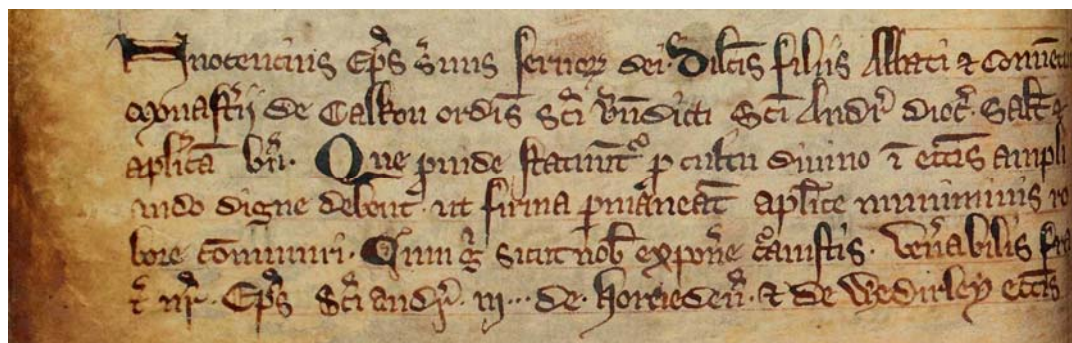 Innocencius Ep̃s s̃uus seruoꝝ dei. Dilc̃is filiis Abbati ⁊ Conuen
monast̾ij de Calkou ordis̃ Sc̃i Bñdicti Sc̃i Andr̃ dioc̃. Salt̃ ⁊
aplic̃a bñ. Que ꝓuide statuunt᷑ ꝓ cultu diuino ĩ ecc̃is ampli
ando digne debent ut firma ꝑmaneãt aplic̃e muniminis ro
bore com̃uniri. Cum g̃ sicut nob̃ expoñe c̃auistis. Veñabilis fra
t̃ nr̃. Ep̃s Sc̃i andr̃. in... de. horuedeñ. ⁊ de Wedirley ecc̃is